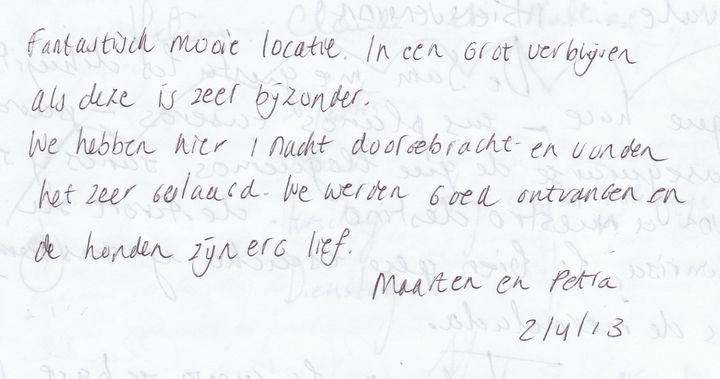 Fantastisch mooie locatie. In een grot verblijven
als deze is zeer bijzonder.
We hebben hier 1 nacht doorgebracht en vonden
het zeer geslaagd. We werden goed ontvangen en
de honden zijn erg lief.
Maarten en Petra
2/4/13